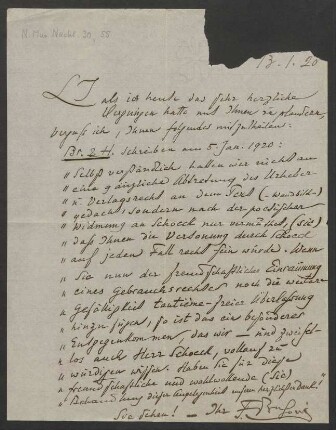 N. Mus. Nachl. 30, 55
13. 1. 20
L J als ich heute das sehr herzliche
Vergnügen hatte mit Ihnen zu plaudern,
vergass ich, Ihnen folgendes mitzutheilen:
Br. & H. schreiben am 5. Jan. 1920:
„Selbstverständlich haben wir nicht an
„eine gänzliche Abtretung des Urheber
„u. Verlagsrecht an dem Text
„gedacht, sondern nach der poetischen
„Widmung an Schoeck nur vermuthet, (Sic)
„dass Ihnen die Vertonung durch Schoeck
„auf jeden Fall recht sein würde. Wenn
„Sie nun der freundschaftlichen Einräumung
„eines Gebrauchsrechtes noch die weitere
„Gefälligkeit tantieme-freier Überlassung
„hinzu fügen, so ist das ein besonderes
„Entgegenkommen, das wir – und zweifel-
„los auch Herr Schoeck, vollauf zu
„würdigen wissen. Haben Sie für diese
„freundschaftliche und wohlwollende (Sic)
„Behandlung dieser Angelegenheit unsern herzlichsten Dank!"
Ihr F Busoni